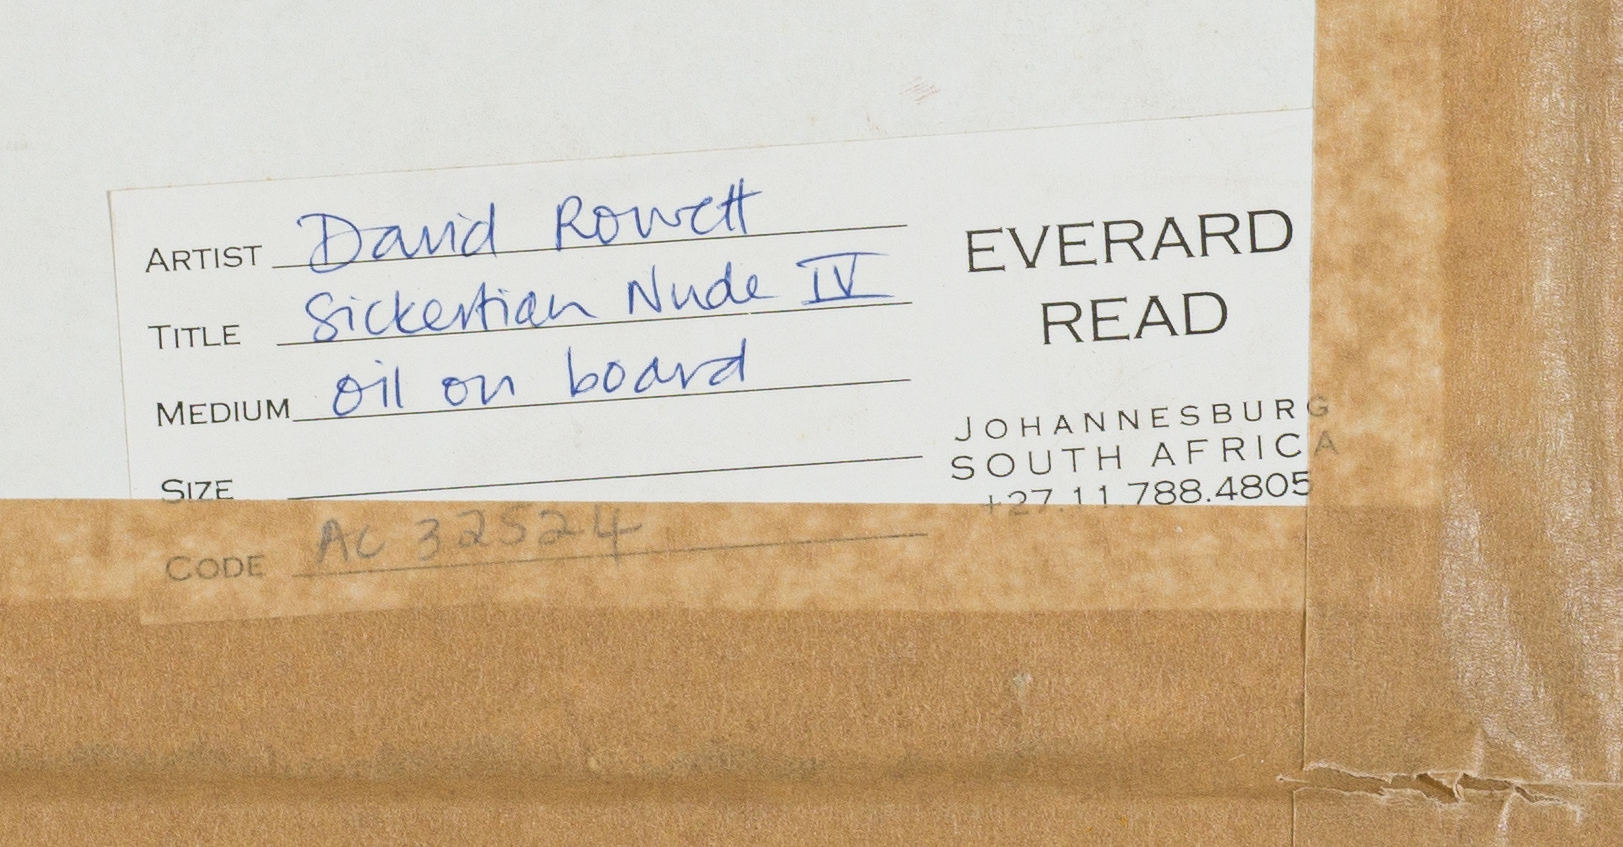 ARTIST David Rowett
TITLE Sickertian Nude IV
MEDIUM oil on board
SIZE
CODE AC 32524
EVERARD
READ
JOHANNESBURG
SOUTH AFRICA
+27.11.788.4805